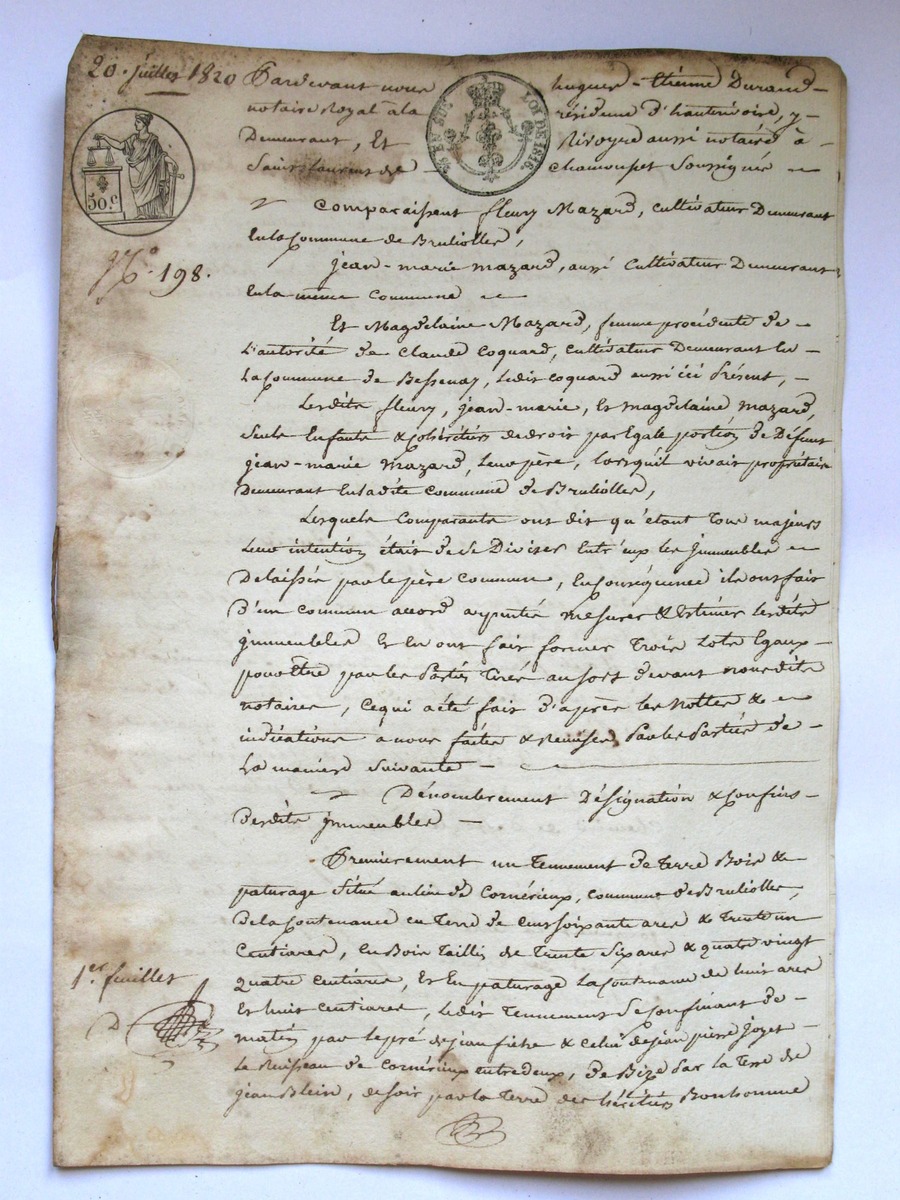 20. juillet 1820
Pardevant nous hugues-étienne Durand
notaire Royal à la résidence d'hauterivoire, y
Demeurant, Et Rivoyre aussi notaire à
Saint Laurent de chamousset Soussignés
TIMB. EN SUS
LOI DE 1816
50 c
No. 198.
Comparaissent fleury Mazard, cultivateur Demeurant
En la Commune de Brullioles,
jean-marie mazard, aussi Cultivateur Demeurant
En la même commune
Et Magdelaine Mazard, femme procédente de
L'autorité de Claude Coquard, cultivateur Demeurant En
La Commune de Bessenay, Ledit Coquard aussi ici Présent,
Lesdits fleury, jean-marie, Et magdelaine Mazard,
Seuls Enfants & Cohéritiers de droit par Egale portion de Défunt
jean-marie Mazard, Leur père, lorsqu'il vivait propriétaire
Demeurant En ladite Commune de Brullioles,
Lesquels Comparants ont dit qu'étant Tous majeurs
Leur intention était de Se Diviser Entr'eux les immeubles
Delaissés par le père commun, En Conséquence ils ont fait
D'un commun accord arpenter mesurer & Estimer lesdits
immeubles Et En ont fait former Trois Lots Egaux
pour Être par les Parties Tirés au sort devant nousdits
notaires, Ce qui a été fait d'après les Nottes &
indications à nous faites & Remises Par les Parties de
La maniere Suivante
Dénombrement Désignation & Confins
Desdits immeubles
Premierement un Tennement de Terre Bois &
paturage Situé au lieu de Cornérieux, commune de Brullioles,
De la Contenance en Terre de Cent soixante ares & Trente un
Centiares, En Bois Taillis de Trente Six ares & quatre vingt
quatre centiares, Et En paturage La Contenance de huit ares
Et huit Centiares, Ledit Tennement Se Confinant de
matin par le pré de jean fietre & celui de jean pierre Joyet
Le Ruisseau de Cornérieux entredeux, de Bize Par la Terre de
jean Blein, de soir par la Terre des héritiers Bonhomme
1er. feuillet
D